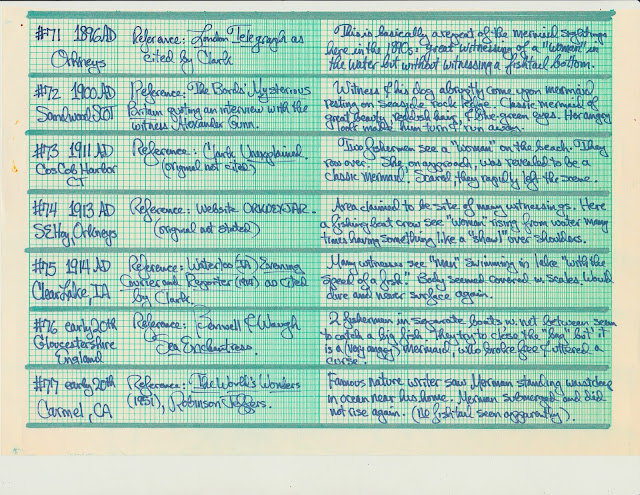 #71 1896 AD
Orkneys
Reference: London Telegraph as
cited by Clark
This is basically a repeat of the mermaid sightings
here in the 1890s: great witnessing of a "woman" in
the water but without witnessing a fishtail bottom.
#72 1900 AD
Sandwood SCOT
Reference: The Bords Mysterious
Britain quoting an interview with the
witness Alexander Gunn.
Witness & his dog abruptly come upon mermaid
resting on seaside rock ledge. Classic mermaid of
great beauty, reddish hair, & blue-green eyes. Her angry
look made him turn & run away.
#73 1911 AD
Cos Cob Harbor
CT
Reference: Clark Unexplained.
(original not cited)
Two fishermen see a "woman" on the beach. They
row over. She, on approach, was revealed to be a
classic mermaid. Scared, they rapidly left the scene.
#74 1913 AD
SE Hoy, Orkneys
Reference: Website ORKNEYJAR.
(original not stated)
Area claimed to be site of many witnessings. Here
a fishing boat crew see "woman" rising from water many
times having something like a "shawl" over shoulders.
#75 1914 AD
Clear Lake, IA
Reference: Waterloo (IA) Evening
Courier and Reporter (1914) as cited
by Clark.
Many witnesses see "man" swimming in lake "with the
speed of a fish". Body seemed covered w. scales. Would
dive and never surface again.
#76 early 20th
Gloucestershire
England
Reference: Benwell & Waugh
Sea Enchantress.
2 fisherman in separate boats w. net between seem
to catch a big fish. They try to close the "bag" but it
is a (very angry) mermaid, who broke free & uttered a
curse.
#77 early 20th
Carmel, CA
Reference: The World's Wonders
(1951), Robinson Jeffers.
Famous nature writer saw Merman standing waist deep
in ocean near his home. Merman submerged and did
not rise again. (No fishtail seen apparently).